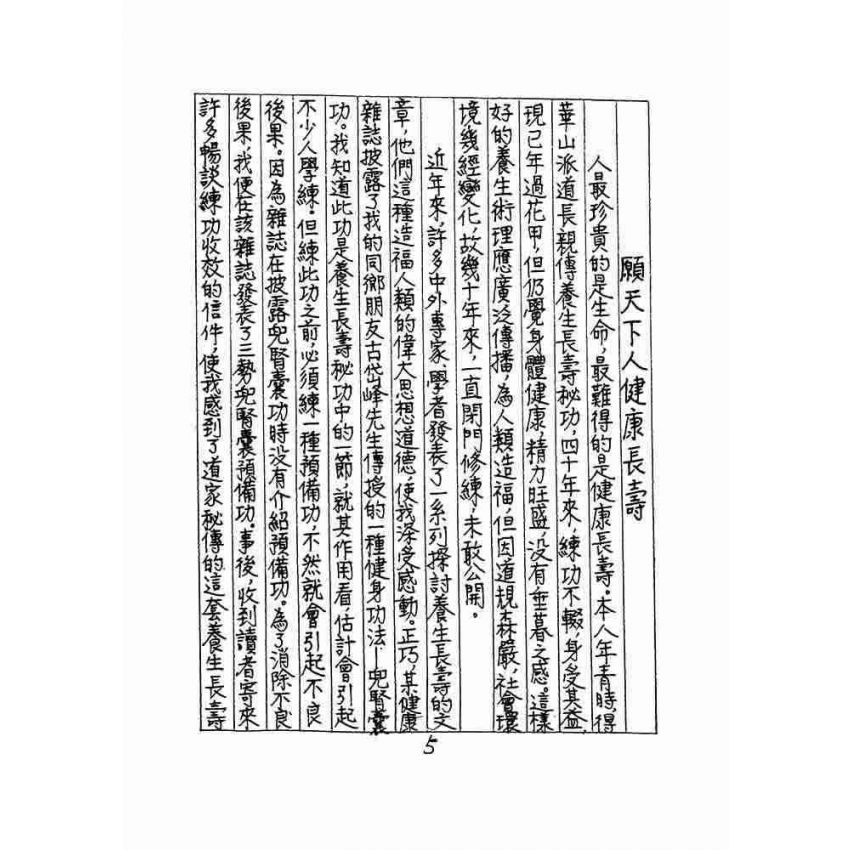 願天下人健康長壽
人最珍貴的是生命，最難得的是健康長壽。本人年青時，得
華山派道長親傳養生長壽秘功，四十年來，練功不輟，身受其益，
現已年過花甲，但仍覺身體健康，精力旺盛，沒有垂暮之感。這樣
好的養生術理應廣泛傳播，為人類造福，但因道規森嚴，社會環
境幾經變化，故幾十年來，一直閉門修練，未敢公開。
近年來，許多中外專家、學者發表了一系列探討養生長壽的文
章，他們這種造福人類的偉大思想道德，使我深受感動。正巧，某健康
雜誌披露了我的同鄉朋友古岱峰先生傳授的一種健身功法—兜腎囊
功。我知道此功是養生長壽秘功中的一節，就其作用看，估計會引起
不少人學練。但練此功之前，必須練一種預備功，不然就會引起不良
後果。因為雜誌在披露兜腎囊功時沒有介紹預備功。為了消除不良
後果，我便在該雜誌發表了三勢兜腎囊預備功。事後，收到讀者寄來
許多暢談練功收效的信件，使我感到了道家秘傳的這套養生長壽
5